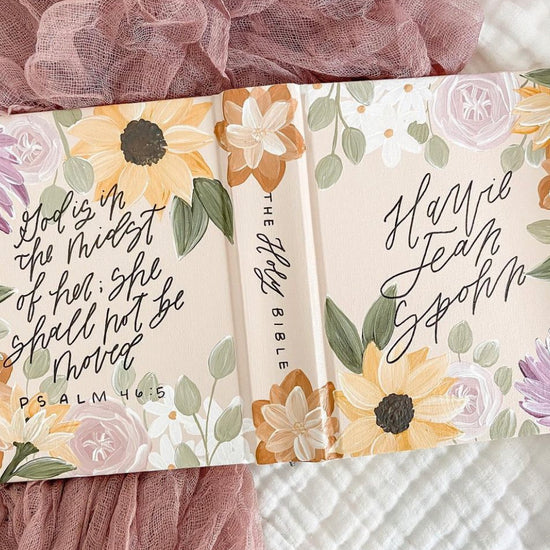 God is in
the midst
of her; she
shall not be
moved
PSALM 46:5
THE Holy BIBLE
Hattie
Jean
Spohn